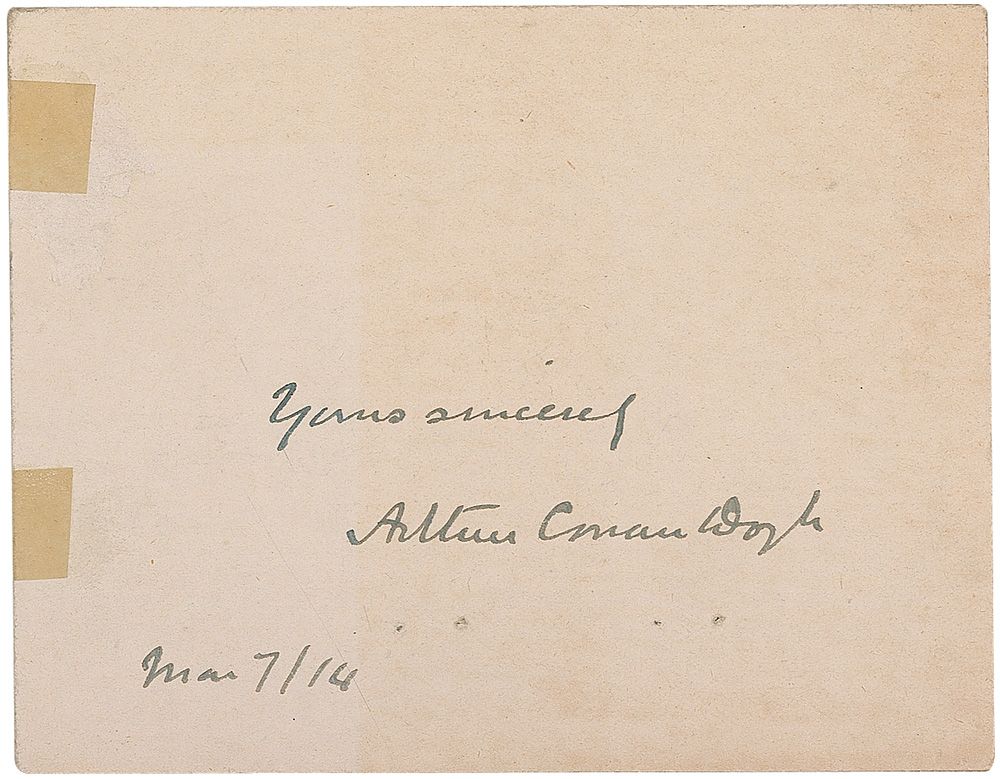 Yours sincerely
Arthur Conan Doyle
Mar 7/14